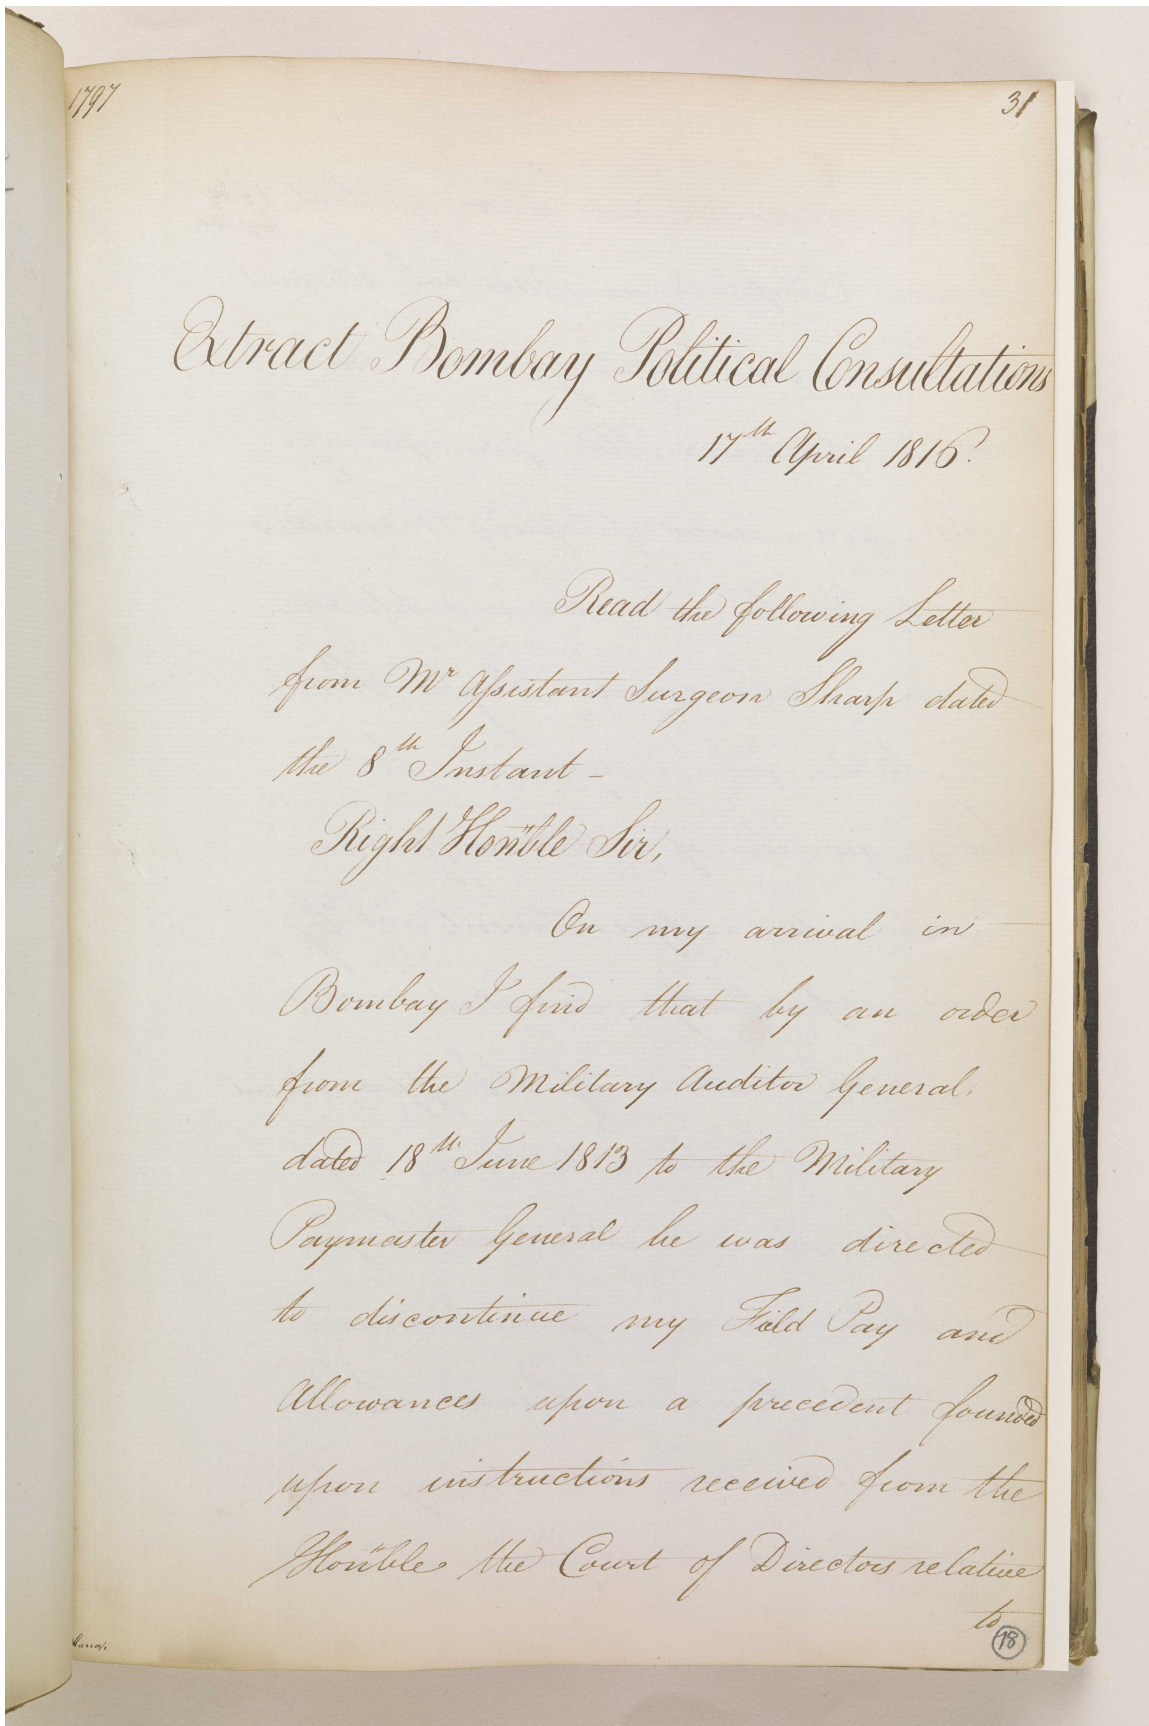 1797
31
Extract Bombay Political Consultations
17th April 1816.
Read the following Letter
from Mr Assistant Surgeon Sharp dated
the 8th Instant -
Right Honble Sir,
On my arrival in
Bombay I find that by an order
from the Military Auditor General.
dated 18th June 1813 to the Military
Paymaster General he was directed
to discontinue my Field Pay and
Allowances upon a precedent founded
upon instructions received from the
Honble the Court of Directors relative
to
18